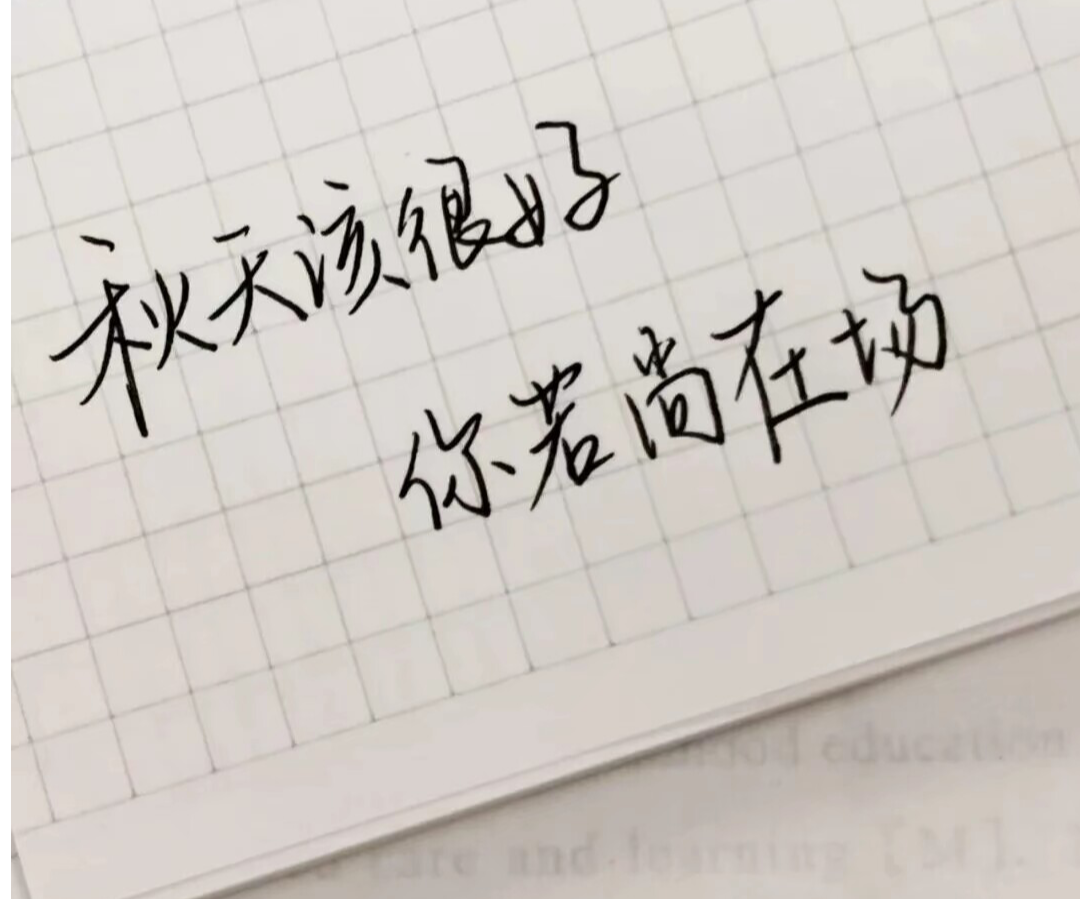 秋天该很好
你若尚在场
education
care and learning [M].